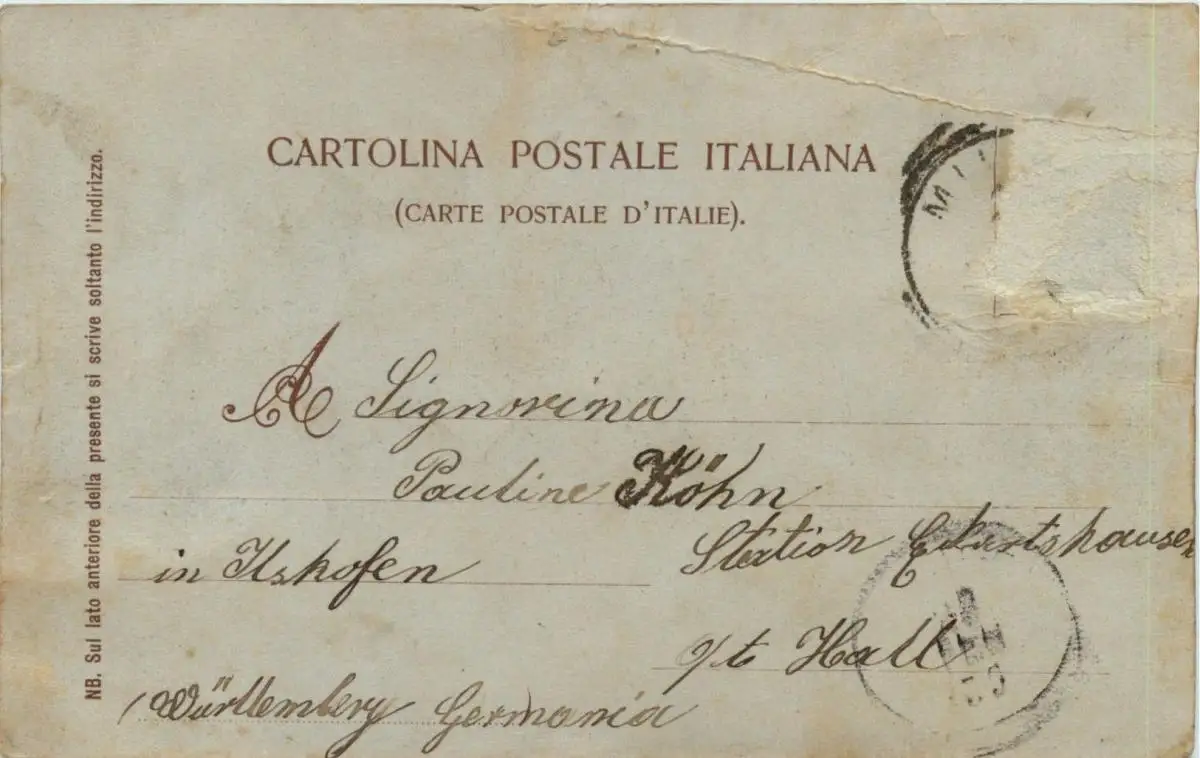 CARTOLINA POSTALE ITALIANA
(CARTE POSTALE D'ITALIE).
NB. Sul lato anteriore della presente si scrive soltanto l'indirizzo.
A Signorina
Pauline Köhn
in Ilshofen
Station Eckartshausen
o/t Hall
(Württemberg Germania